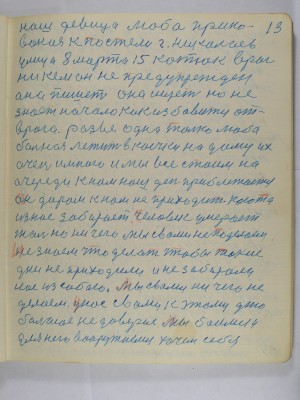 13
наш девица люба прико-
вокая к постели г. Николаев
улица 8 марта 15 котюк враг
ни кем он не предупрежден
она пишет она ищет но не
знает начало как избавить от-
врага. розве одна только люба
болная лежит в коички на дому их
очен много и мы все стоим на
очереди к нам наш ден приближаеть
он даром к нам не приходить кагота
из нас забирает человик умерает
жал но ни чего мы свами не
не знаем что делат чтобы такие
дни не приходили и не забирали
нас из собою. Мы свами ни чего не
делаем. унас свами к этому дню
болшое не доверие мы боимся
для него вооружаемы хочим себя